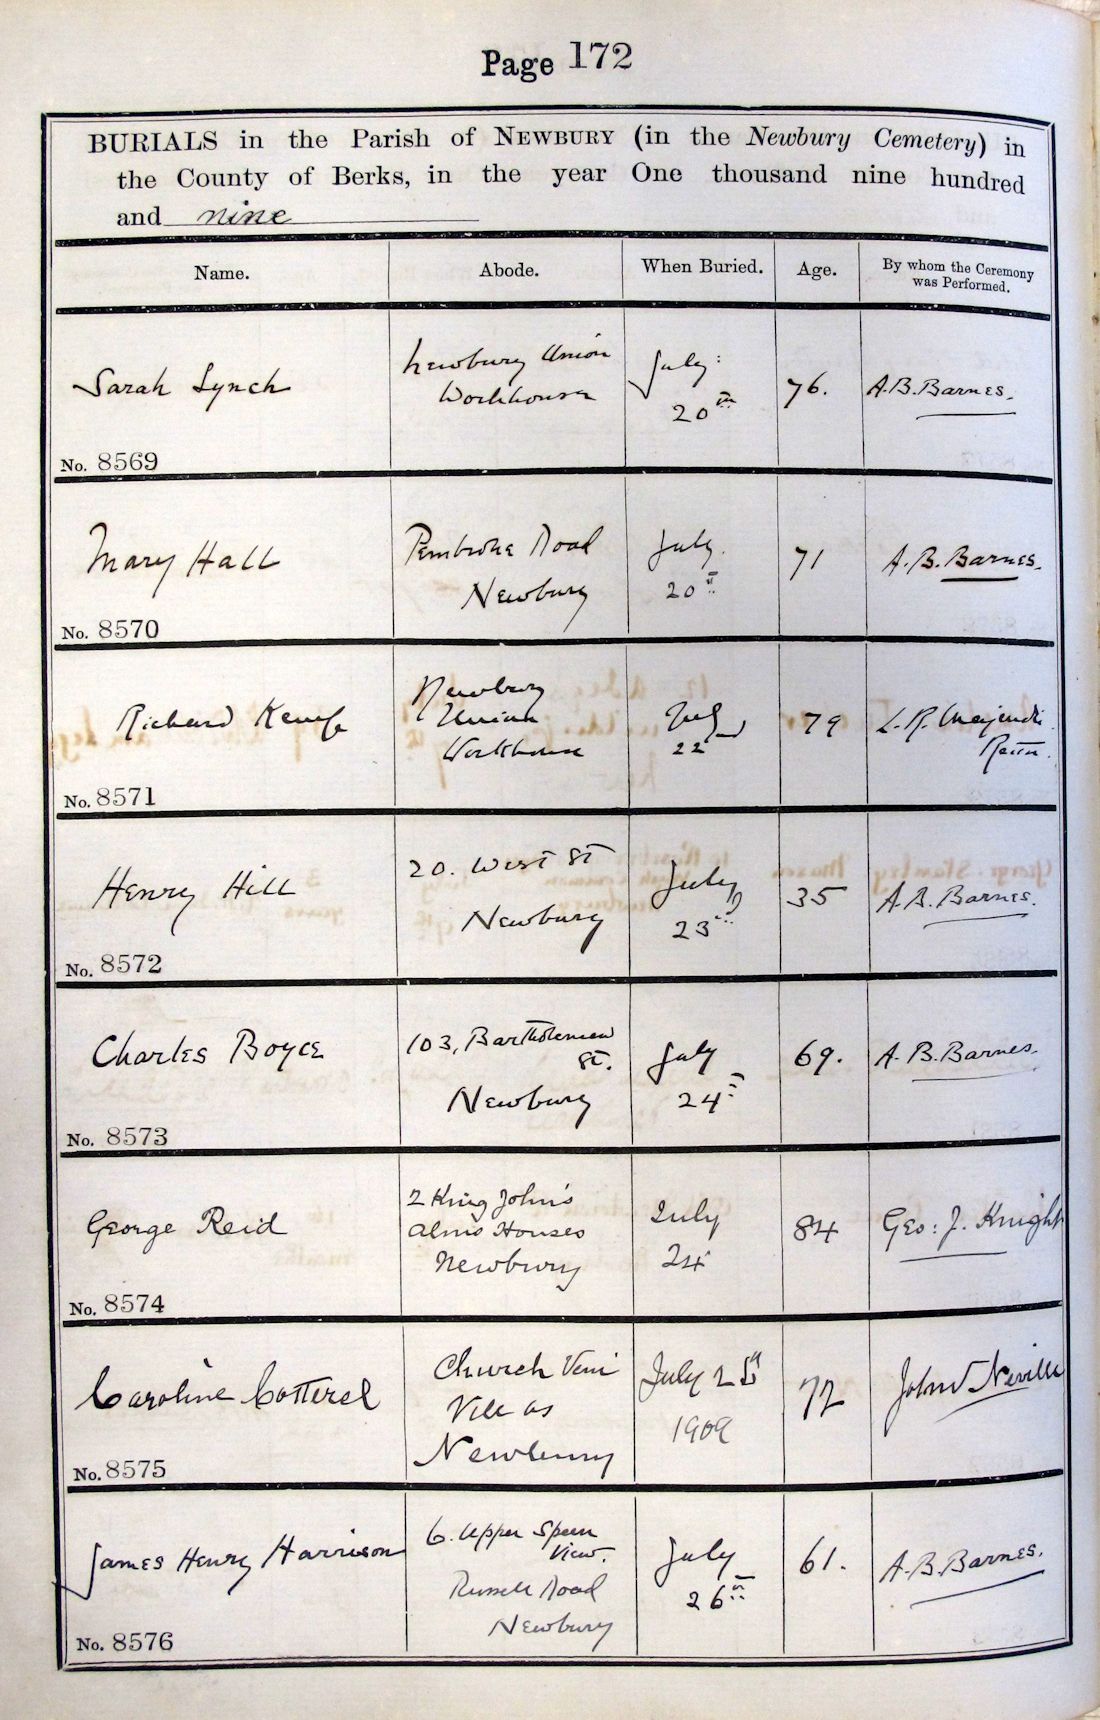 Page 172
BURIALS in the Parish of NEWBURY (in the Newbury Cemetery) in
the County of Berks, in the year One thousand nine hundred
and nine
Name.
Abode.
When Buried.
Age.
By whom the Ceremony
was Performed.
Sarah Lynch
Newbury Union
Workhouse
July
20th
76.
A.B. Barnes.
No. 8569
Mary Hall
Pembroke Road
Newbury
July
20th
71
A.B. Barnes.
No. 8570
Richard Kempe
Newbury
Union
Workhouse
July
22nd
79
L.R. Majendie
No. 8571
Henry Hill
20. West St
Newbury
July
23rd
35
A.B. Barnes.
No. 8572
Charles Boyce
103, Bartholomew
St.
Newbury
July
24th
69.
A.B. Barnes.
No. 8573
George Reid
2 King John's
Alms Houses
Newbury
July
24
84
Geo: J. Knight
No. 8574
Caroline Cotterel
Church
Villas
Newbury
July
1909
72
John Neville
No. 8575
James Henry Harrison
6. Upper Speen
View.
Russell Road
Newbury
July
26th
61.
A.B. Barnes.
No. 8576